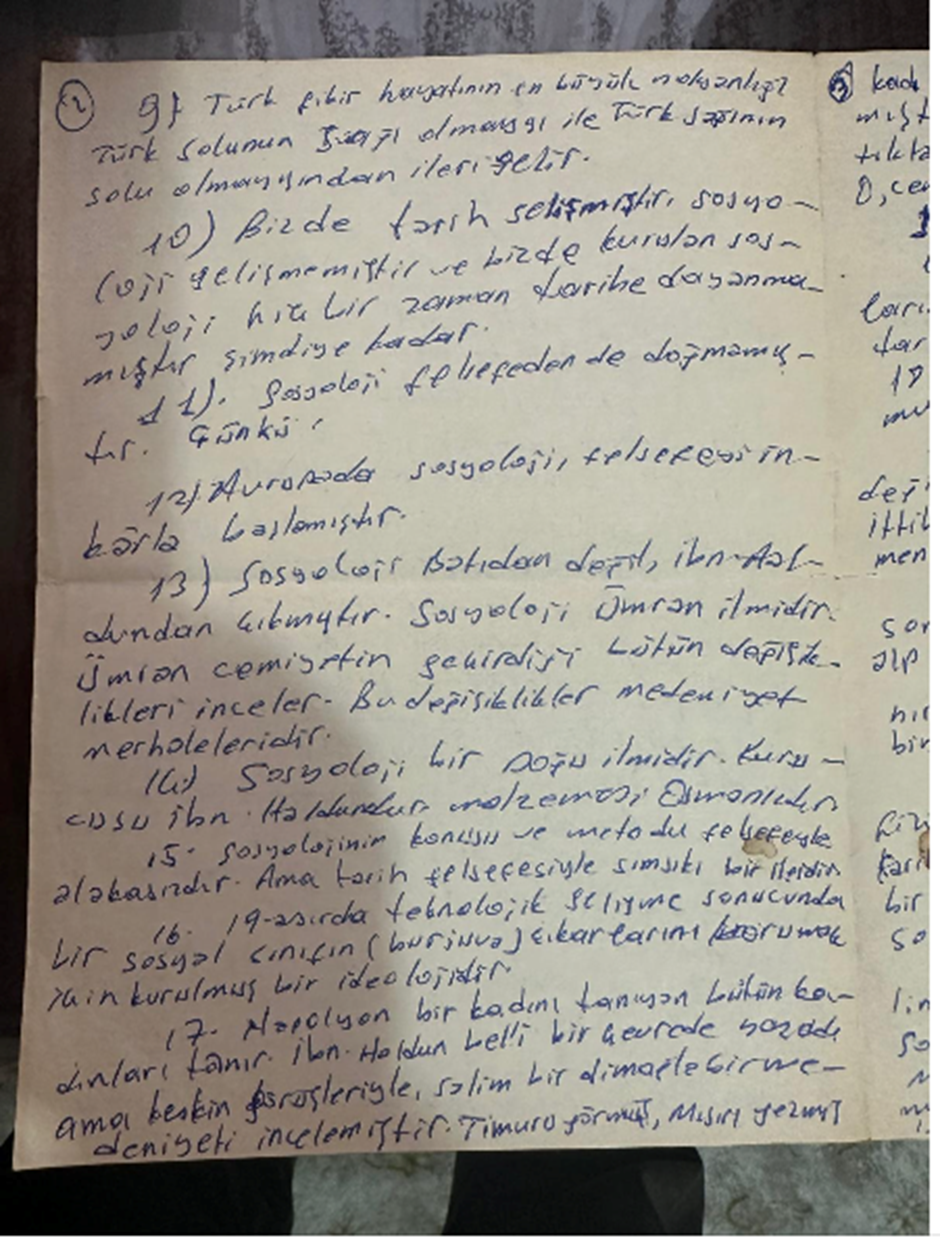 2
9) Türk fikir hayatının en büyük noksanlığı
Türk solunun sağı olmayışı ile Türk sağının
solu olmayışından ileri gelir.
10) Bizde tarih gelişmiştir, sosyo-
loji gelişmemiştir ve bizde kurulan sos-
yoloji hiç bir zaman tarihe dayanma-
mıştır şimdiye kadar.
11). Sosyoloji felsefeden de doğmamış-
tır. Çünkü:
12) Avrupada sosyoloji, felsefeyi in-
kârla başlamıştır.
13) Sosyoloji Batıdan değil, ibn-Hal-
dundan çıkmıştır. Sosyoloji Ümran ilmidir.
Ümran cemiyetin geçirdiği bütün değişik-
likleri inceler. Bu değişiklikler medeniyet
merhaleleridir.
14) Sosyoloji bir Doğu ilmidir. Kuru-
cusu ibn. Haldundur malzemesi Osmanlıdır
15. Sosyolojinin konusu ve metodu felsefeyle
alakasızdır. Ama tarih felsefesiyle sımsıkı bir
16. 19-asırda teknolojik gelişme sonucunda
bir sosyal sınıfın (burjuva) çıkarlarını korumak
için kurulmuş bir ideolojidir
17. Napolyon bir kadını tanıyan bütün ka-
dınları tanır. ibn. Haldun belli bir çevrede yaşadı
ama keskin görüşleriyle, salim bir dimağla bir me-
deniyeti incelemiştir. Timuru görmüş, Mısırı gezmiş
3 kadı
mışt
tıkta
O, cem
ları
tar
18
mu
deği
ittil
men
sor
alp
hiç
bir
tari
bir
so
lin
so